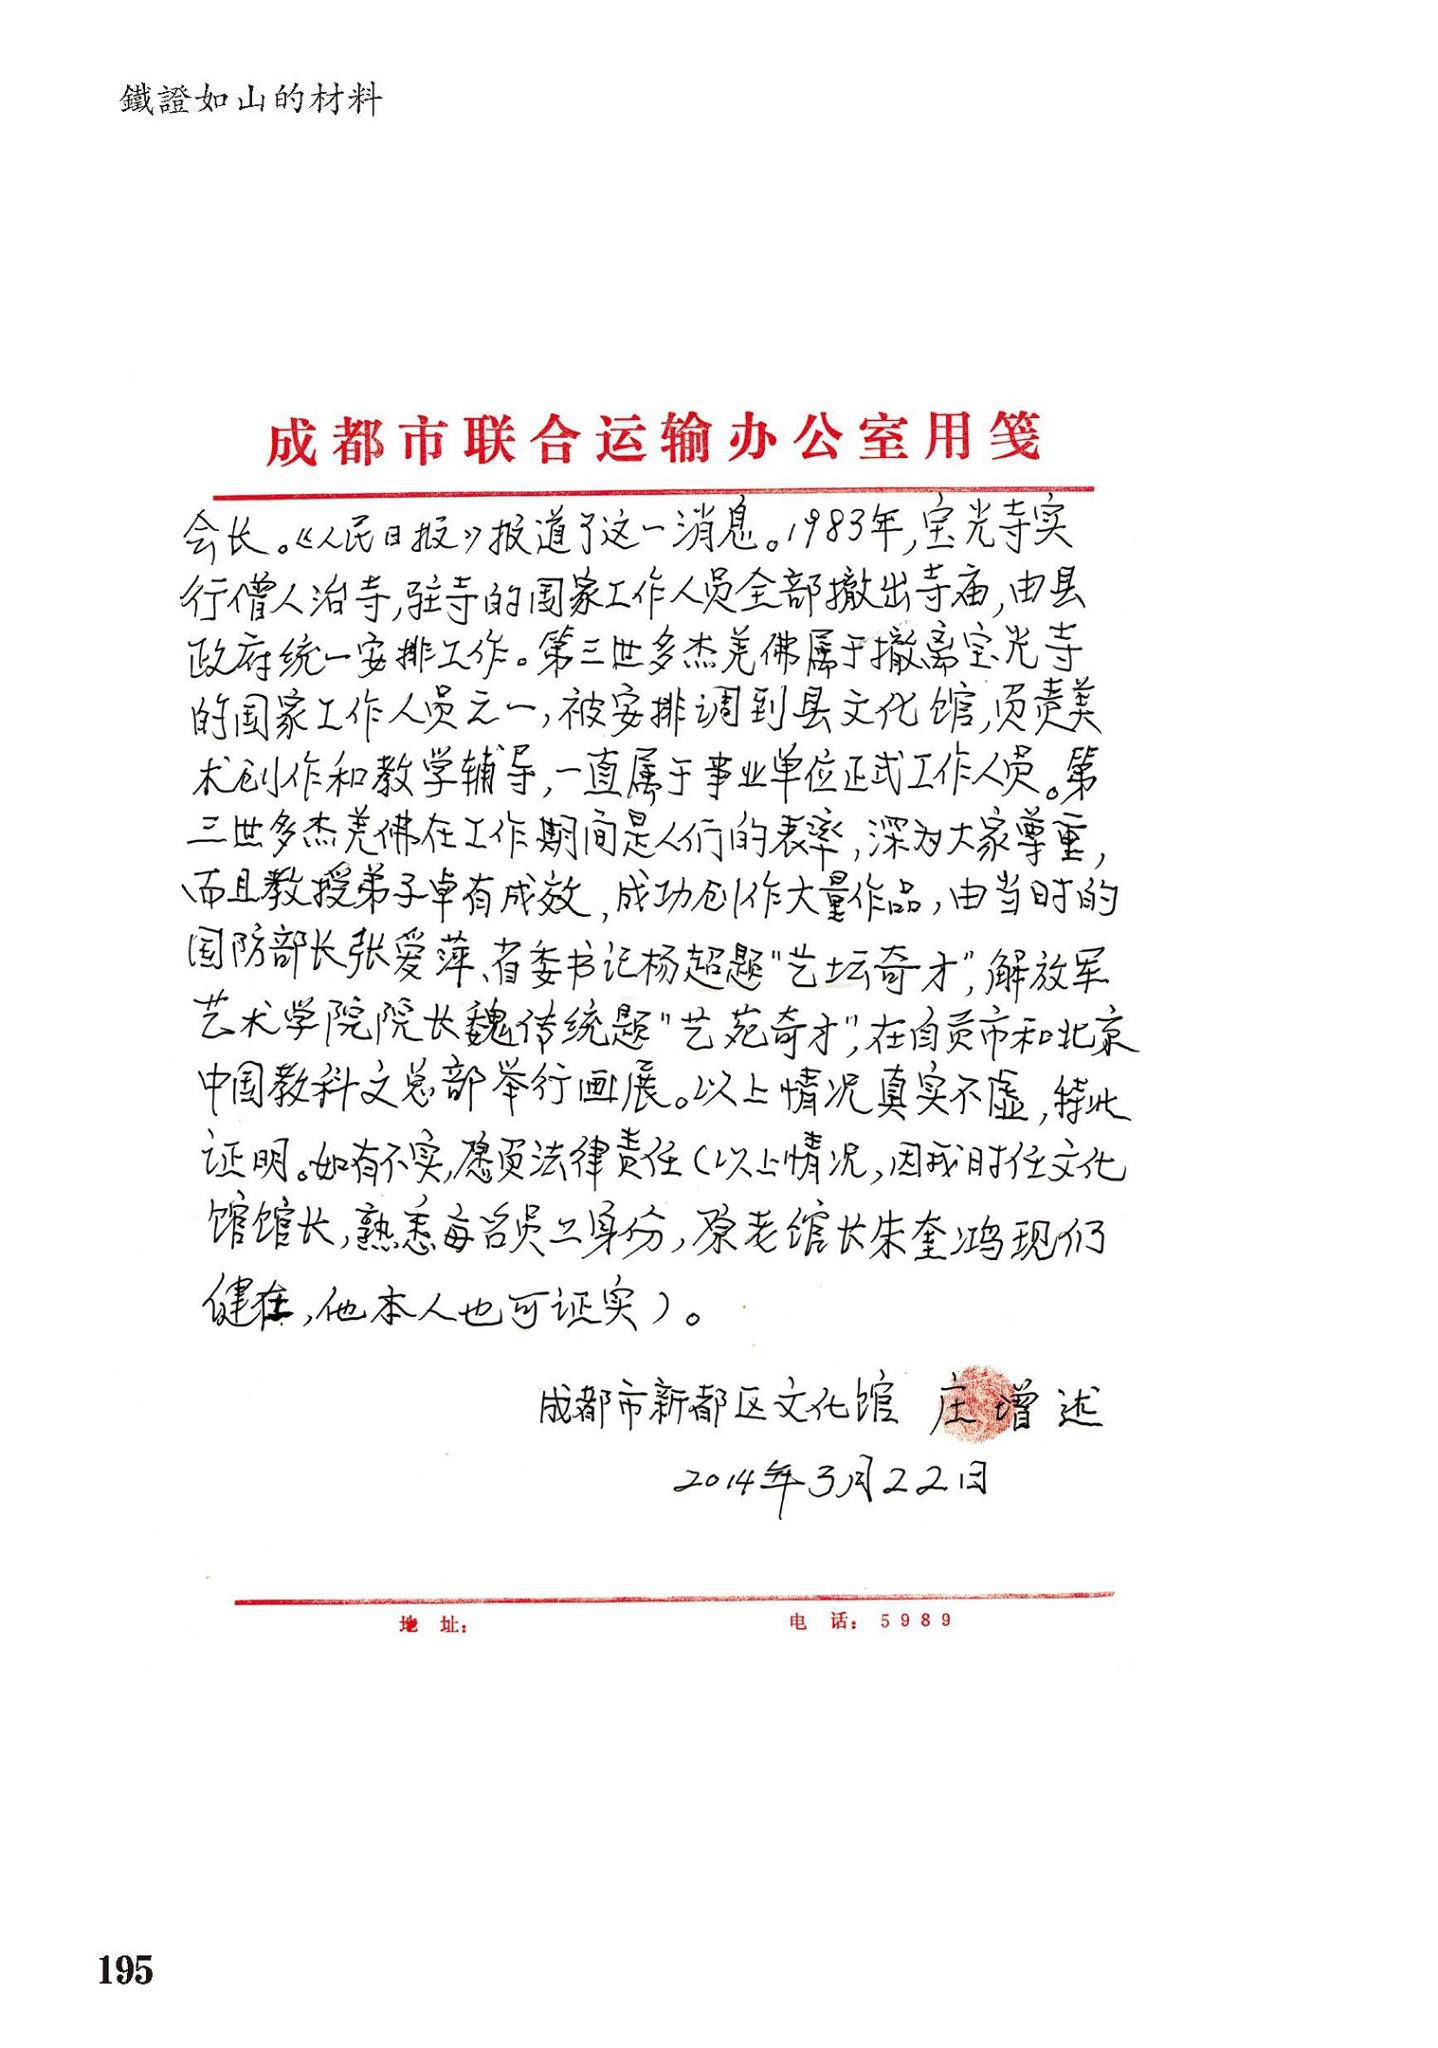 鐵證如山的材料
成都市联合运输办公室用笺
会长。《人民日报》报道了这一消息。1983年,宝光寺实
行僧人治寺,驻寺的国家工作人员全部撤出寺庙,由县
政府统一安排工作。第三世多杰羌佛属于撤离宝光寺
的国家工作人员之一,被安排调到县文化馆,负责美
术创作和教学辅导,一直属于事业单位正式工作人员。第
三世多杰羌佛在工作期间是人们的表率,深为大家尊重,
而且教授弟子卓有成效,成功创作大量作品,由当时的
国防部长张爱萍、省委书记杨超题"艺坛奇才",解放军
艺术学院院长魏传统题"艺苑奇才",在自贡市和北京
中国教科文总部举行画展。以上情况真实不虚,特此
证明。如有不实,愿负法律责任(以上情况,因我时任文化
馆馆长,熟悉每名员工身份,原老馆长朱奎鸿现仍
健在,他本人也可证实)。
成都市新都区文化馆 庄增述
2014年3月22日
地 址: 电 话:5989
195